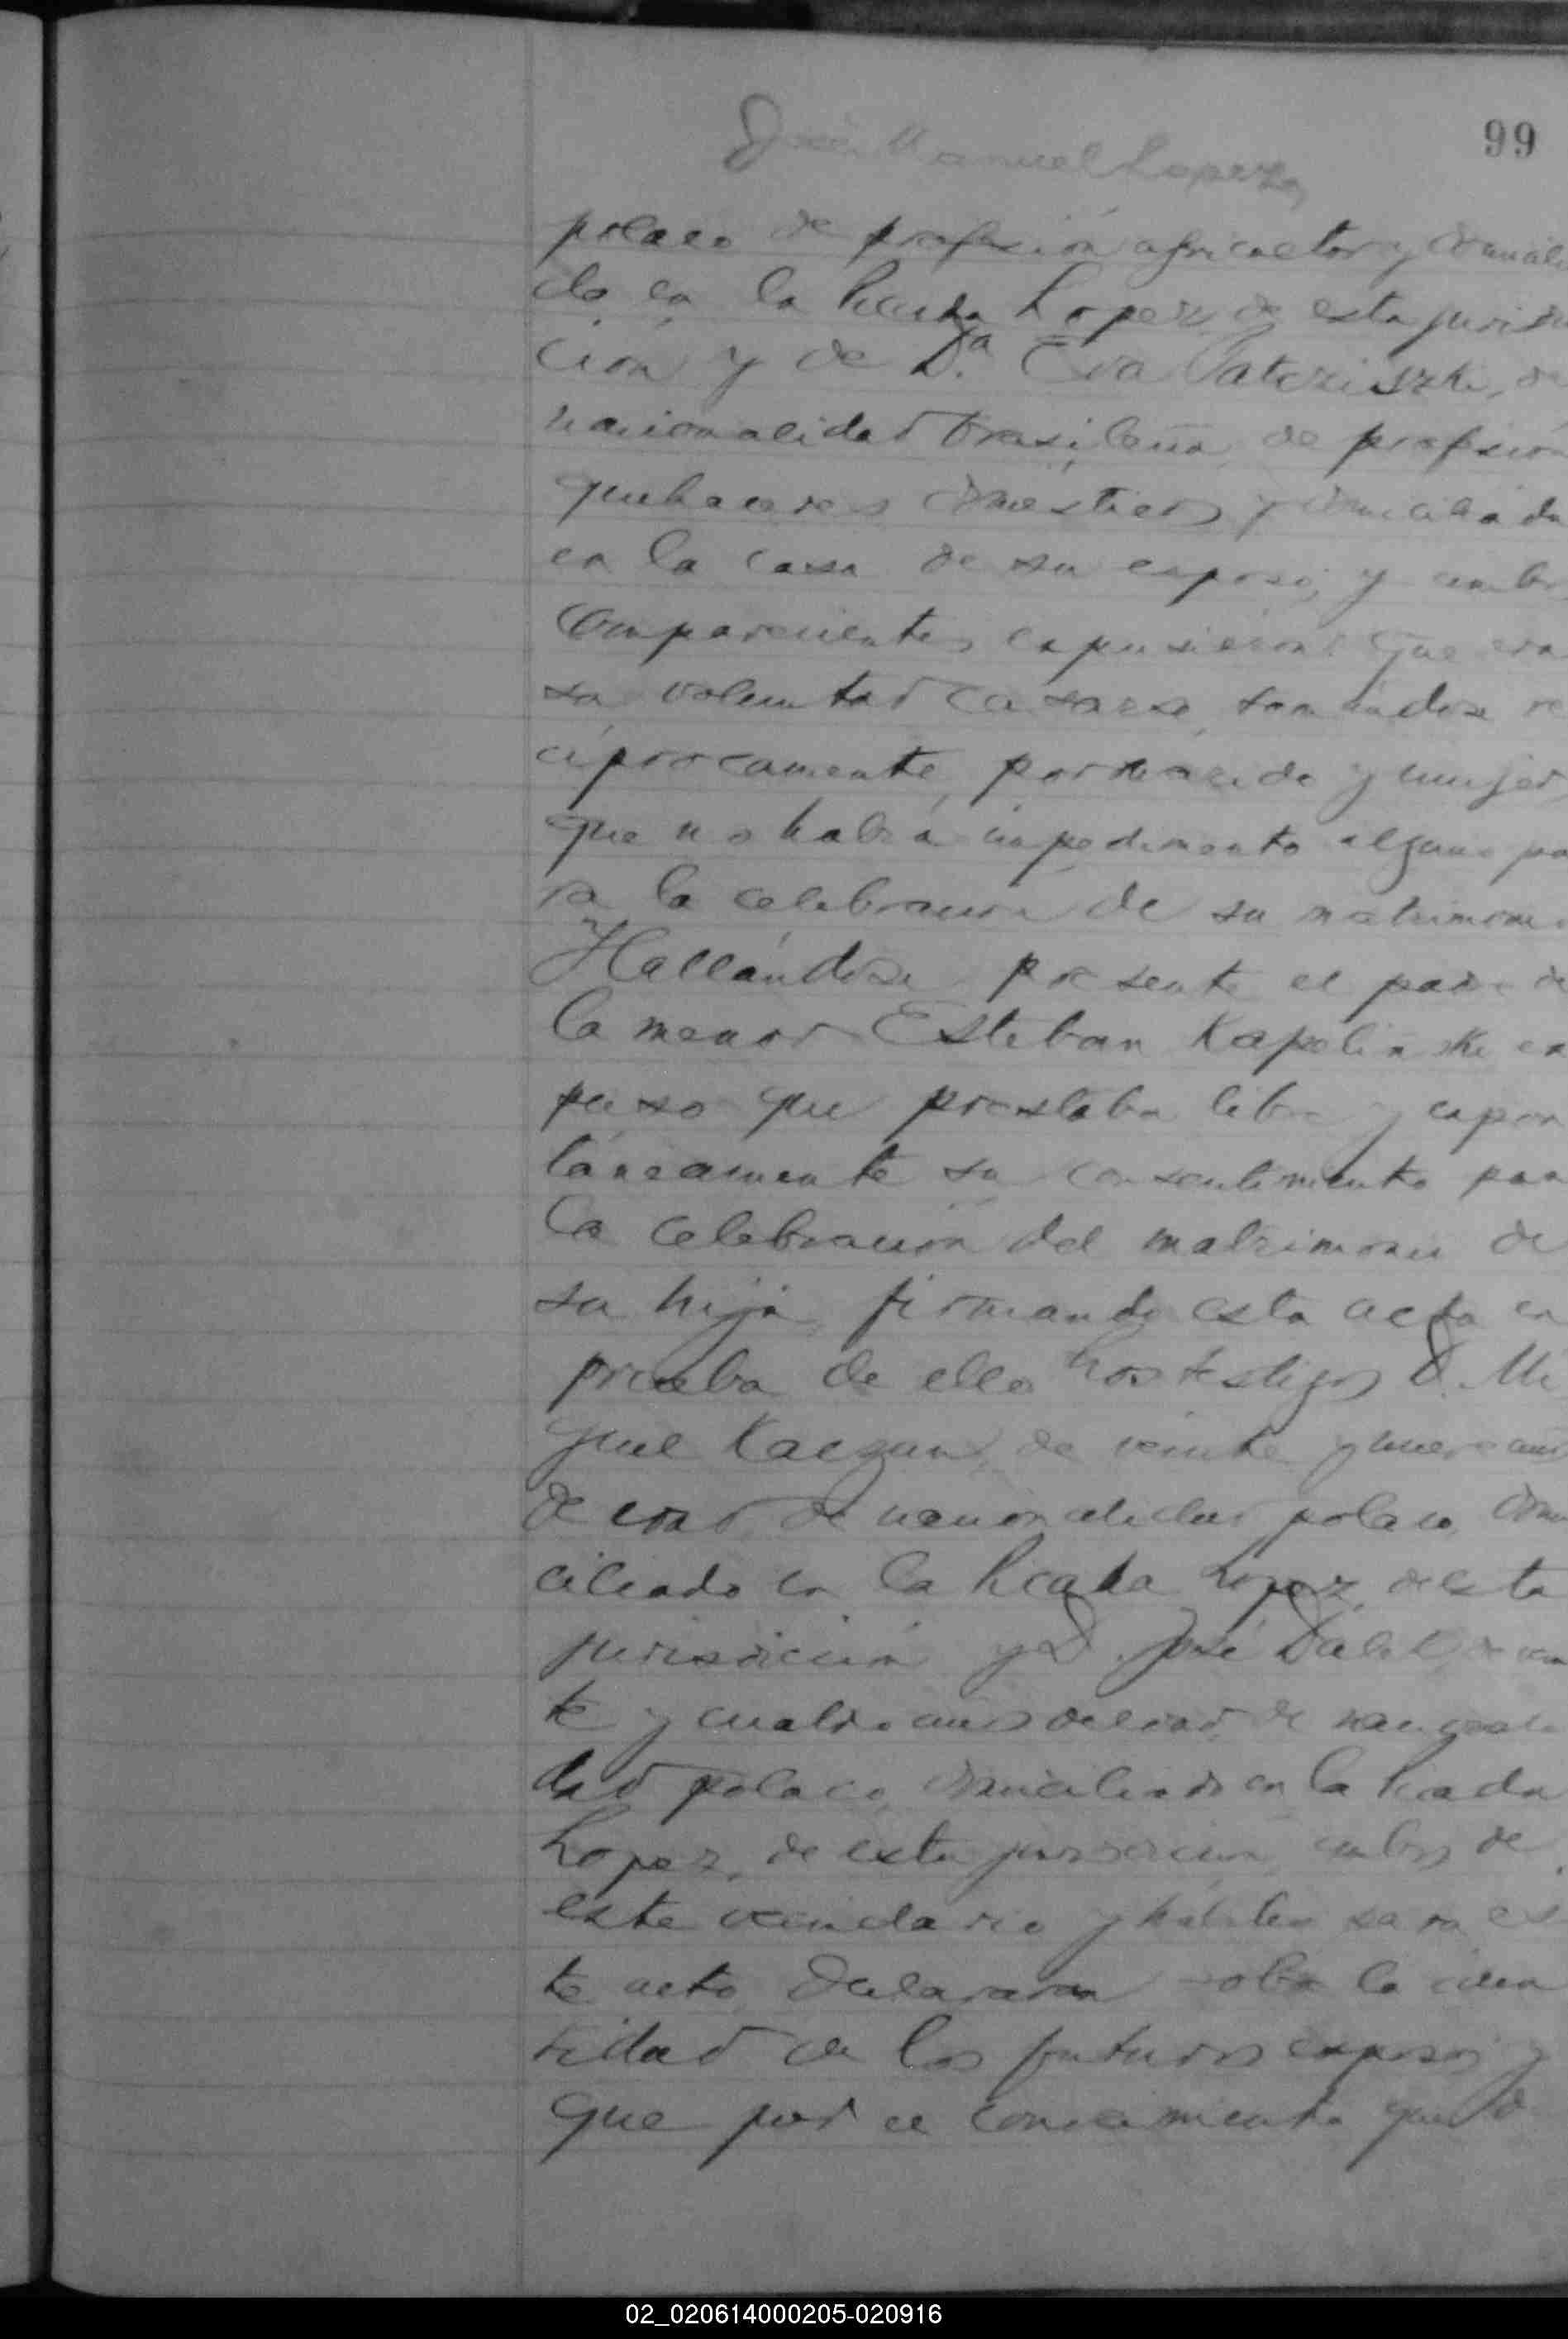 99
José Manuel Lopez
polaco de profesión agricultor y domicili
do en la Picada Lopez, de esta jurisdi
ción y de D.ª Eva de
nacionalidad brasileña, de profesión
quehaceres domésticos y domiciliada
en la casa de su esposo, y ambos
comparecientes expusieron: que era
su voluntad casarse, tomándose re
ciprocamente, por marido y mujer,
que no había impedimento alguno pa
ra la celebración de su matrimonio
Hallándose presente el padre de
la menor Esteban Kapelinski ex
puso que prestaba libre y espon
táneamente su consentimiento para
la celebración del matrimonio de
su hija, firmando esta acta en
prueba de ello. Los testigos D. Mi
guel de veinte y nueve años
de edad, de nacionalidad polaco, domi
ciliado en la Picada Lopez, de esta
jurisdicción y D. José de vein
te y cuatro años de edad, de nacionali
dad polaco, domiciliado en la Picada
Lopez, de esta jurisdicción, ambos de
este vecindario y hábiles para es
te acto, declararon sobre la iden
tidad de los futuros esposos y
que por el conocimiento que d
02_020614000205-020916